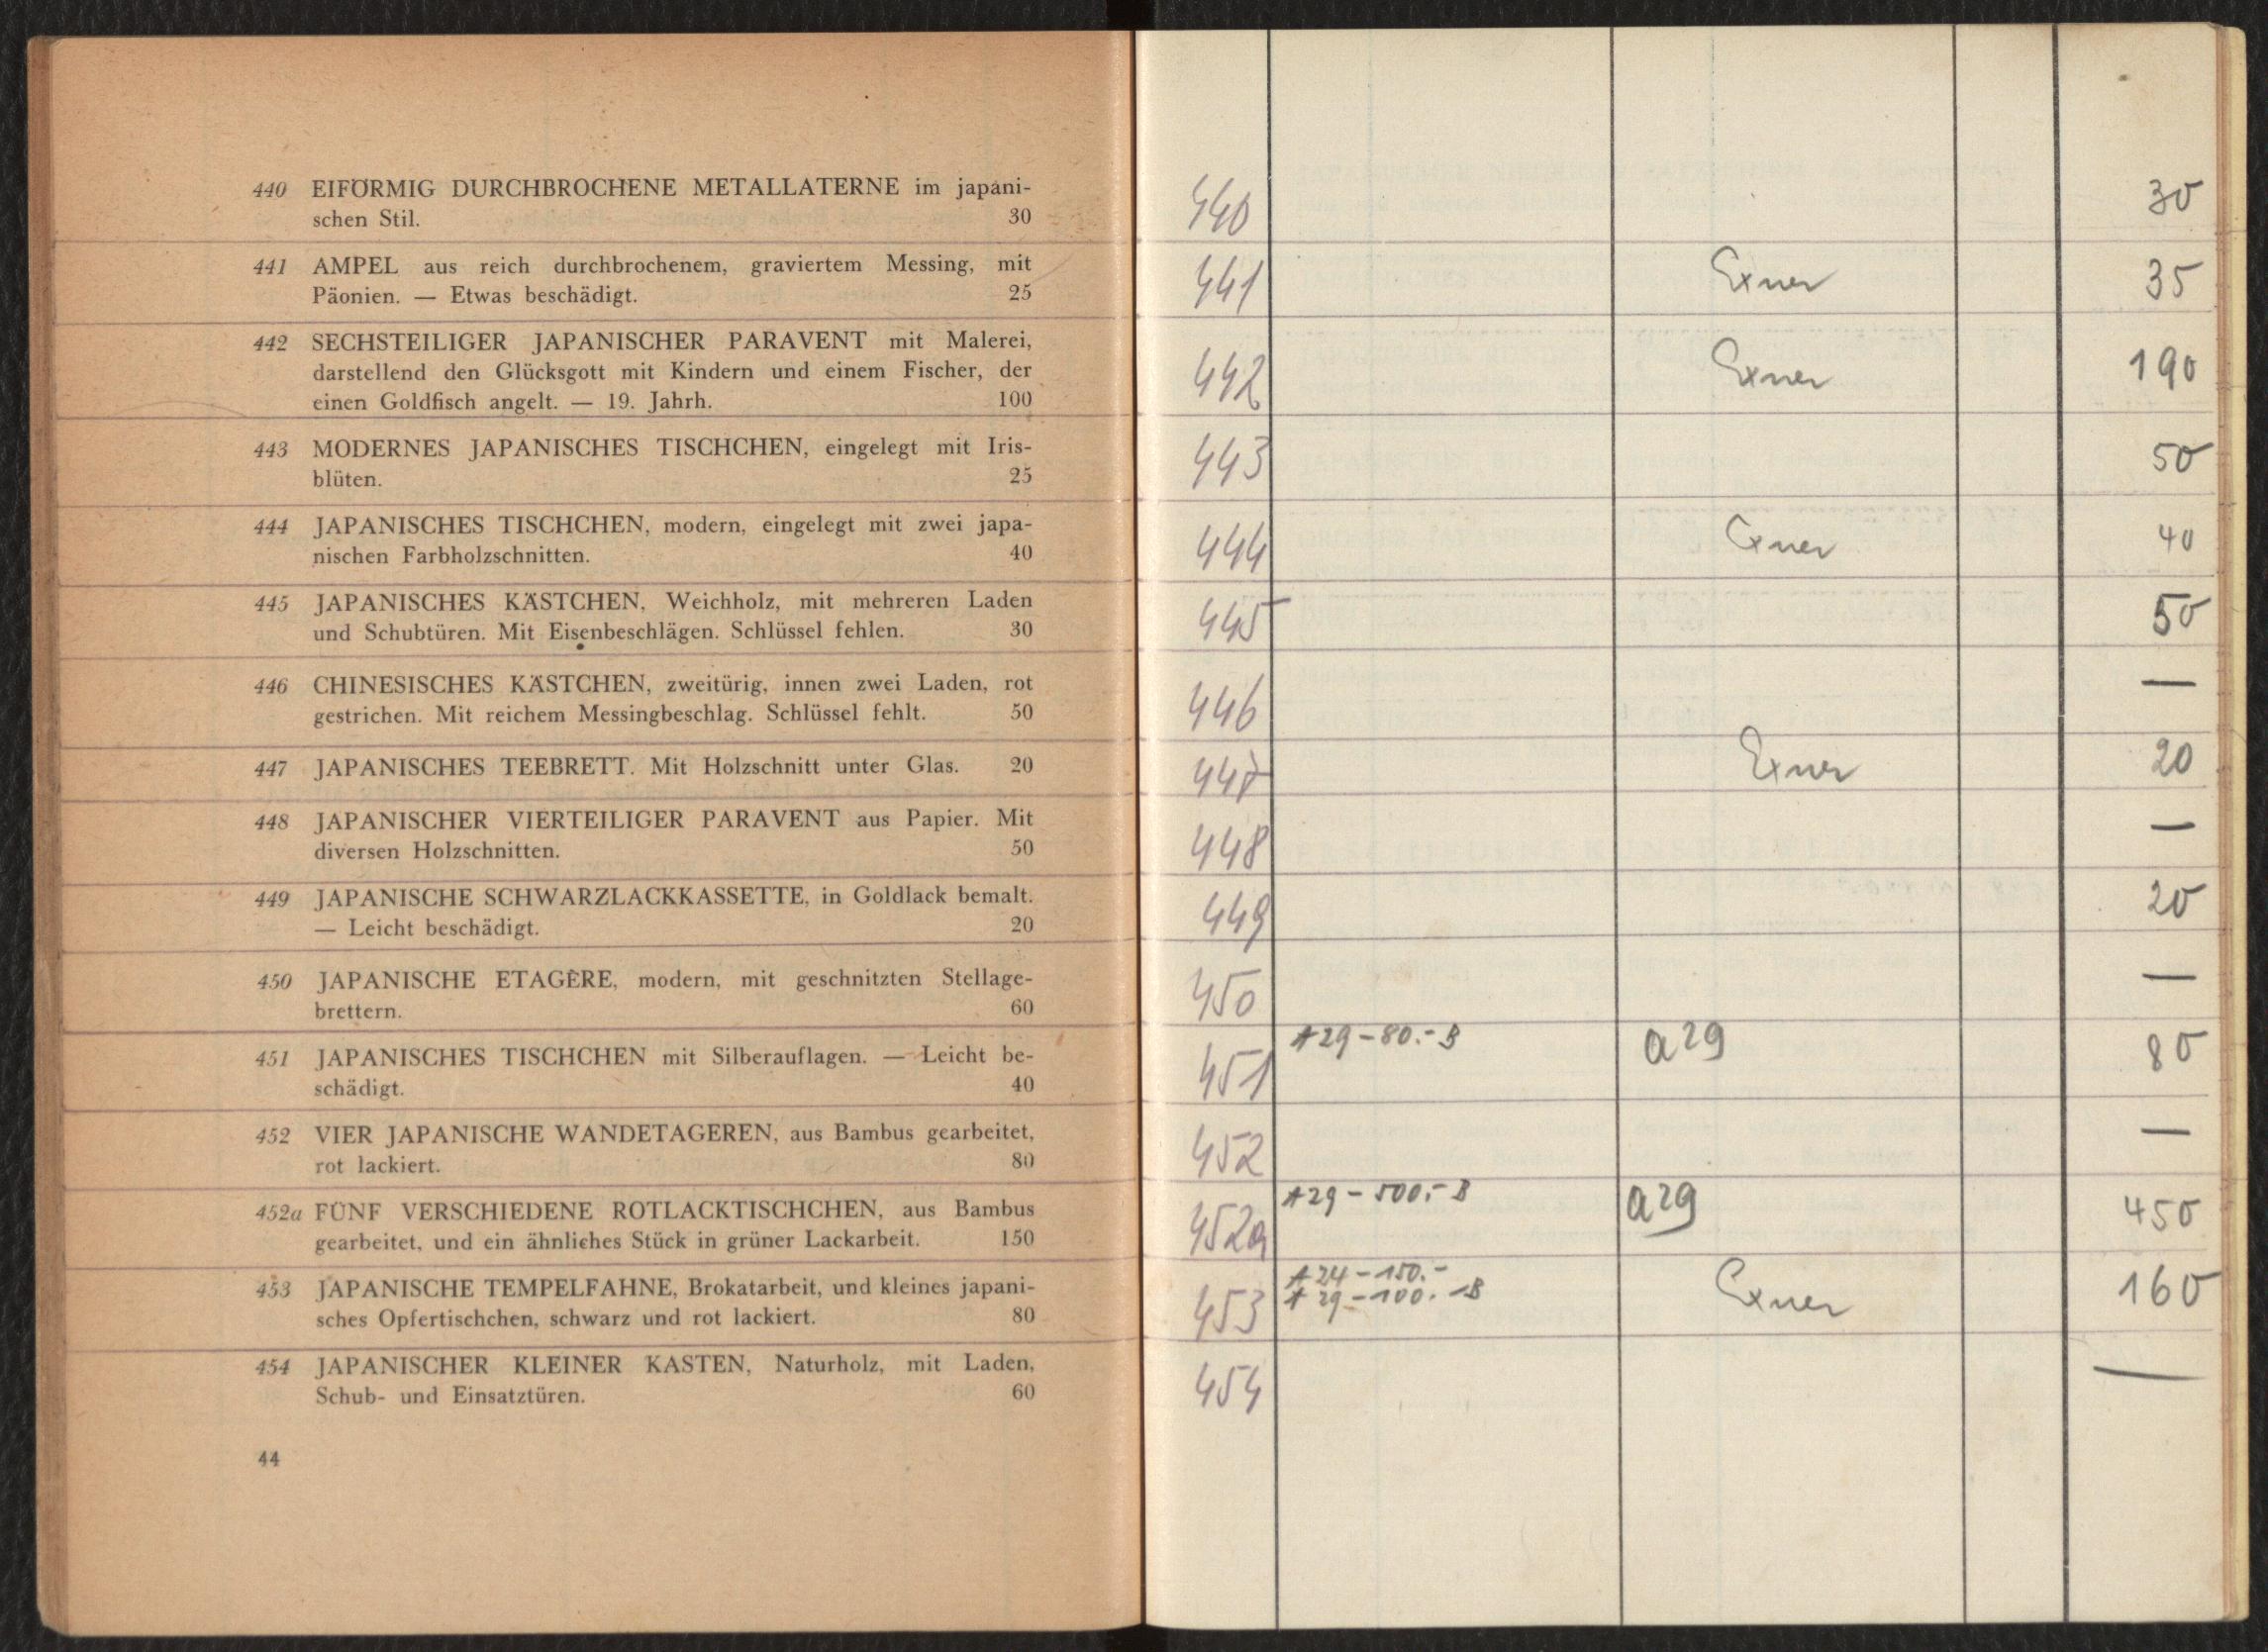 440 EIFÖRMIG DURCHBROCHENE METALLATERNE im japani-
schen Stil. 30
441 AMPEL aus reich durchbrochenem, graviertem Messing, mit
Päonien. — Etwas beschädigt. 25
442 SECHSTEILIGER JAPANISCHER PARAVENT mit Malerei,
darstellend den Glücksgott mit Kindern und einem Fischer, der
einen Goldfisch angelt. — 19. Jahrh. 100
443 MODERNES JAPANISCHES TISCHCHEN, eingelegt mit Iris-
blüten. 25
444 JAPANISCHES TISCHCHEN, modern, eingelegt mit zwei japa-
nischen Farbholzschnitten. 40
445 JAPANISCHES KÄSTCHEN, Weichholz, mit mehreren Laden
und Schubtüren. Mit Eisenbeschlägen. Schlüssel fehlen. 30
446 CHINESISCHES KÄSTCHEN, zweitürig, innen zwei Laden, rot
gestrichen. Mit reichem Messingbeschlag. Schlüssel fehlt. 50
447 JAPANISCHES TEEBRETT. Mit Holzschnitt unter Glas. 20
448 JAPANISCHER VIERTEILIGER PARAVENT aus Papier. Mit
diversen Holzschnitten. 50
449 JAPANISCHE SCHWARZLACKKASSETTE, in Goldlack bemalt.
— Leicht beschädigt. 20
450 JAPANISCHE ETAGÈRE, modern, mit geschnitzten Stellage-
brettern. 60
451 JAPANISCHES TISCHCHEN mit Silberauflagen. — Leicht be-
schädigt. 40
452 VIER JAPANISCHE WANDETAGEREN, aus Bambus gearbeitet,
rot lackiert. 80
452a FÜNF VERSCHIEDENE ROTLACKTISCHCHEN, aus Bambus
gearbeitet, und ein ähnliches Stück in grüner Lackarbeit. 150
453 JAPANISCHE TEMPELFAHNE, Brokatarbeit, und kleines japani-
sches Opfertischchen, schwarz und rot lackiert. 80
454 JAPANISCHER KLEINER KASTEN, Naturholz, mit Laden,
Schub- und Einsatztüren. 60
44
440 30
441 Exner 35
442 Exner 190
443 50
444 Exner 40
445 50
446 —
447 Exner 20
448 —
449 20
450 —
451 A 29 – 80.- B a 29 80
452 —
452a A 29 – 500.- B a 29 450
453 A 24 – 150.-
A 29 – 100.- B Exner 160
454 —